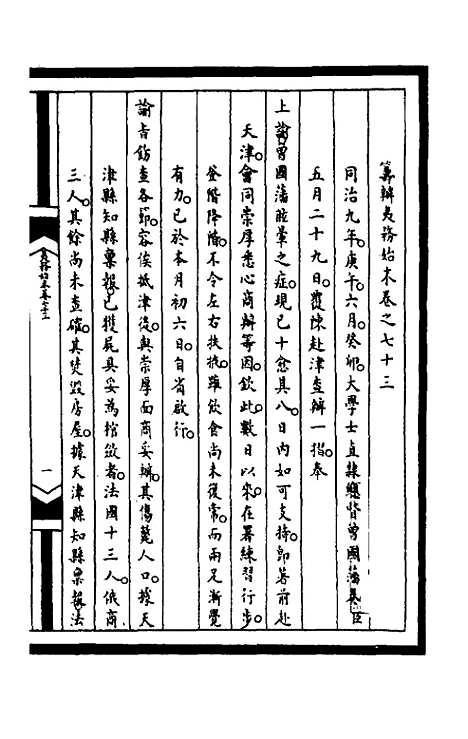 籌辦夷務始末卷之七十三
同治九年。庚午。六月。癸卯。大學士直隸總督曾國藩奏。臣
五月二十九日。覆陳赴津查辦一摺。奉
上諭。曾國藩眩暈之症。現已十愈其八。日內如可支持。即著前赴
天津。會同崇厚悉心商辦等因。欽此。數日以來。在署練習行步。
登階降階。不令左右扶掖。雖飲食尚未復常。而兩足漸覺
有力。已於本月初六日。自省啟行。
諭旨飭查各節。容俟抵津後。與崇厚面商妥辦。其傷斃人口。據天
津縣知縣稟報。已獲屍具妥為棺斂者。法國十三人。俄商
三人。其餘尚未查確。其焚毀房屋。據天津縣知縣稟報。法
夷務始末卷七十三
一